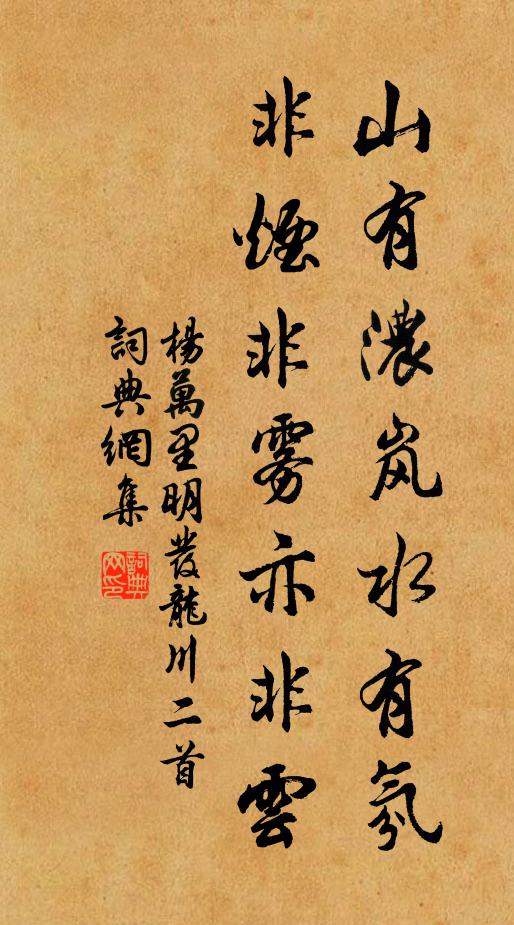 山有濃岚水有氛
非煙非雾亦非雲
楊萬里明發龍川二首
詞典網集
詞典网印